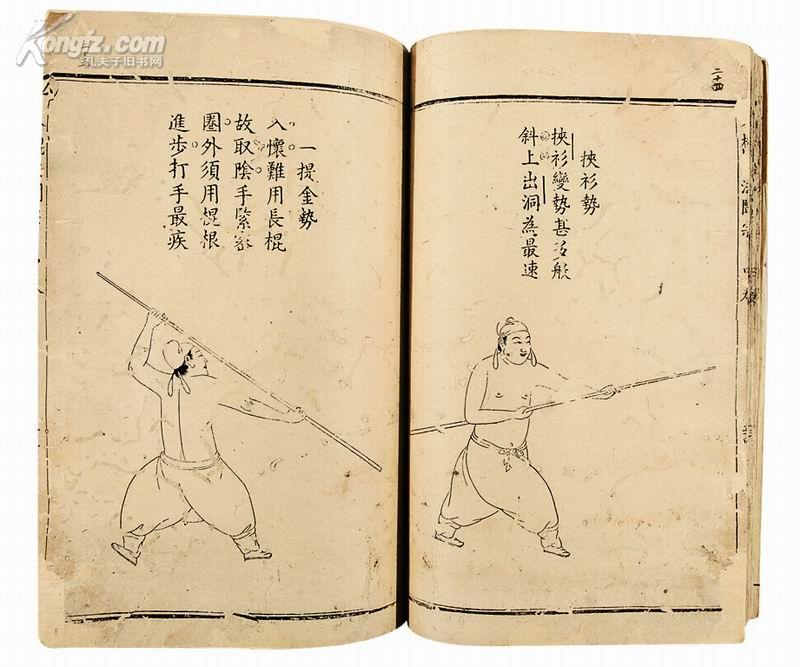 Kongfz.com
孔夫子旧书网
二十四
挾衫勢
挾衫變勢甚活般
斜上出洞為最速
一提金勢
入懷難用長棍
故取陰手緊密
圈外須用棍根
進步打手最疾